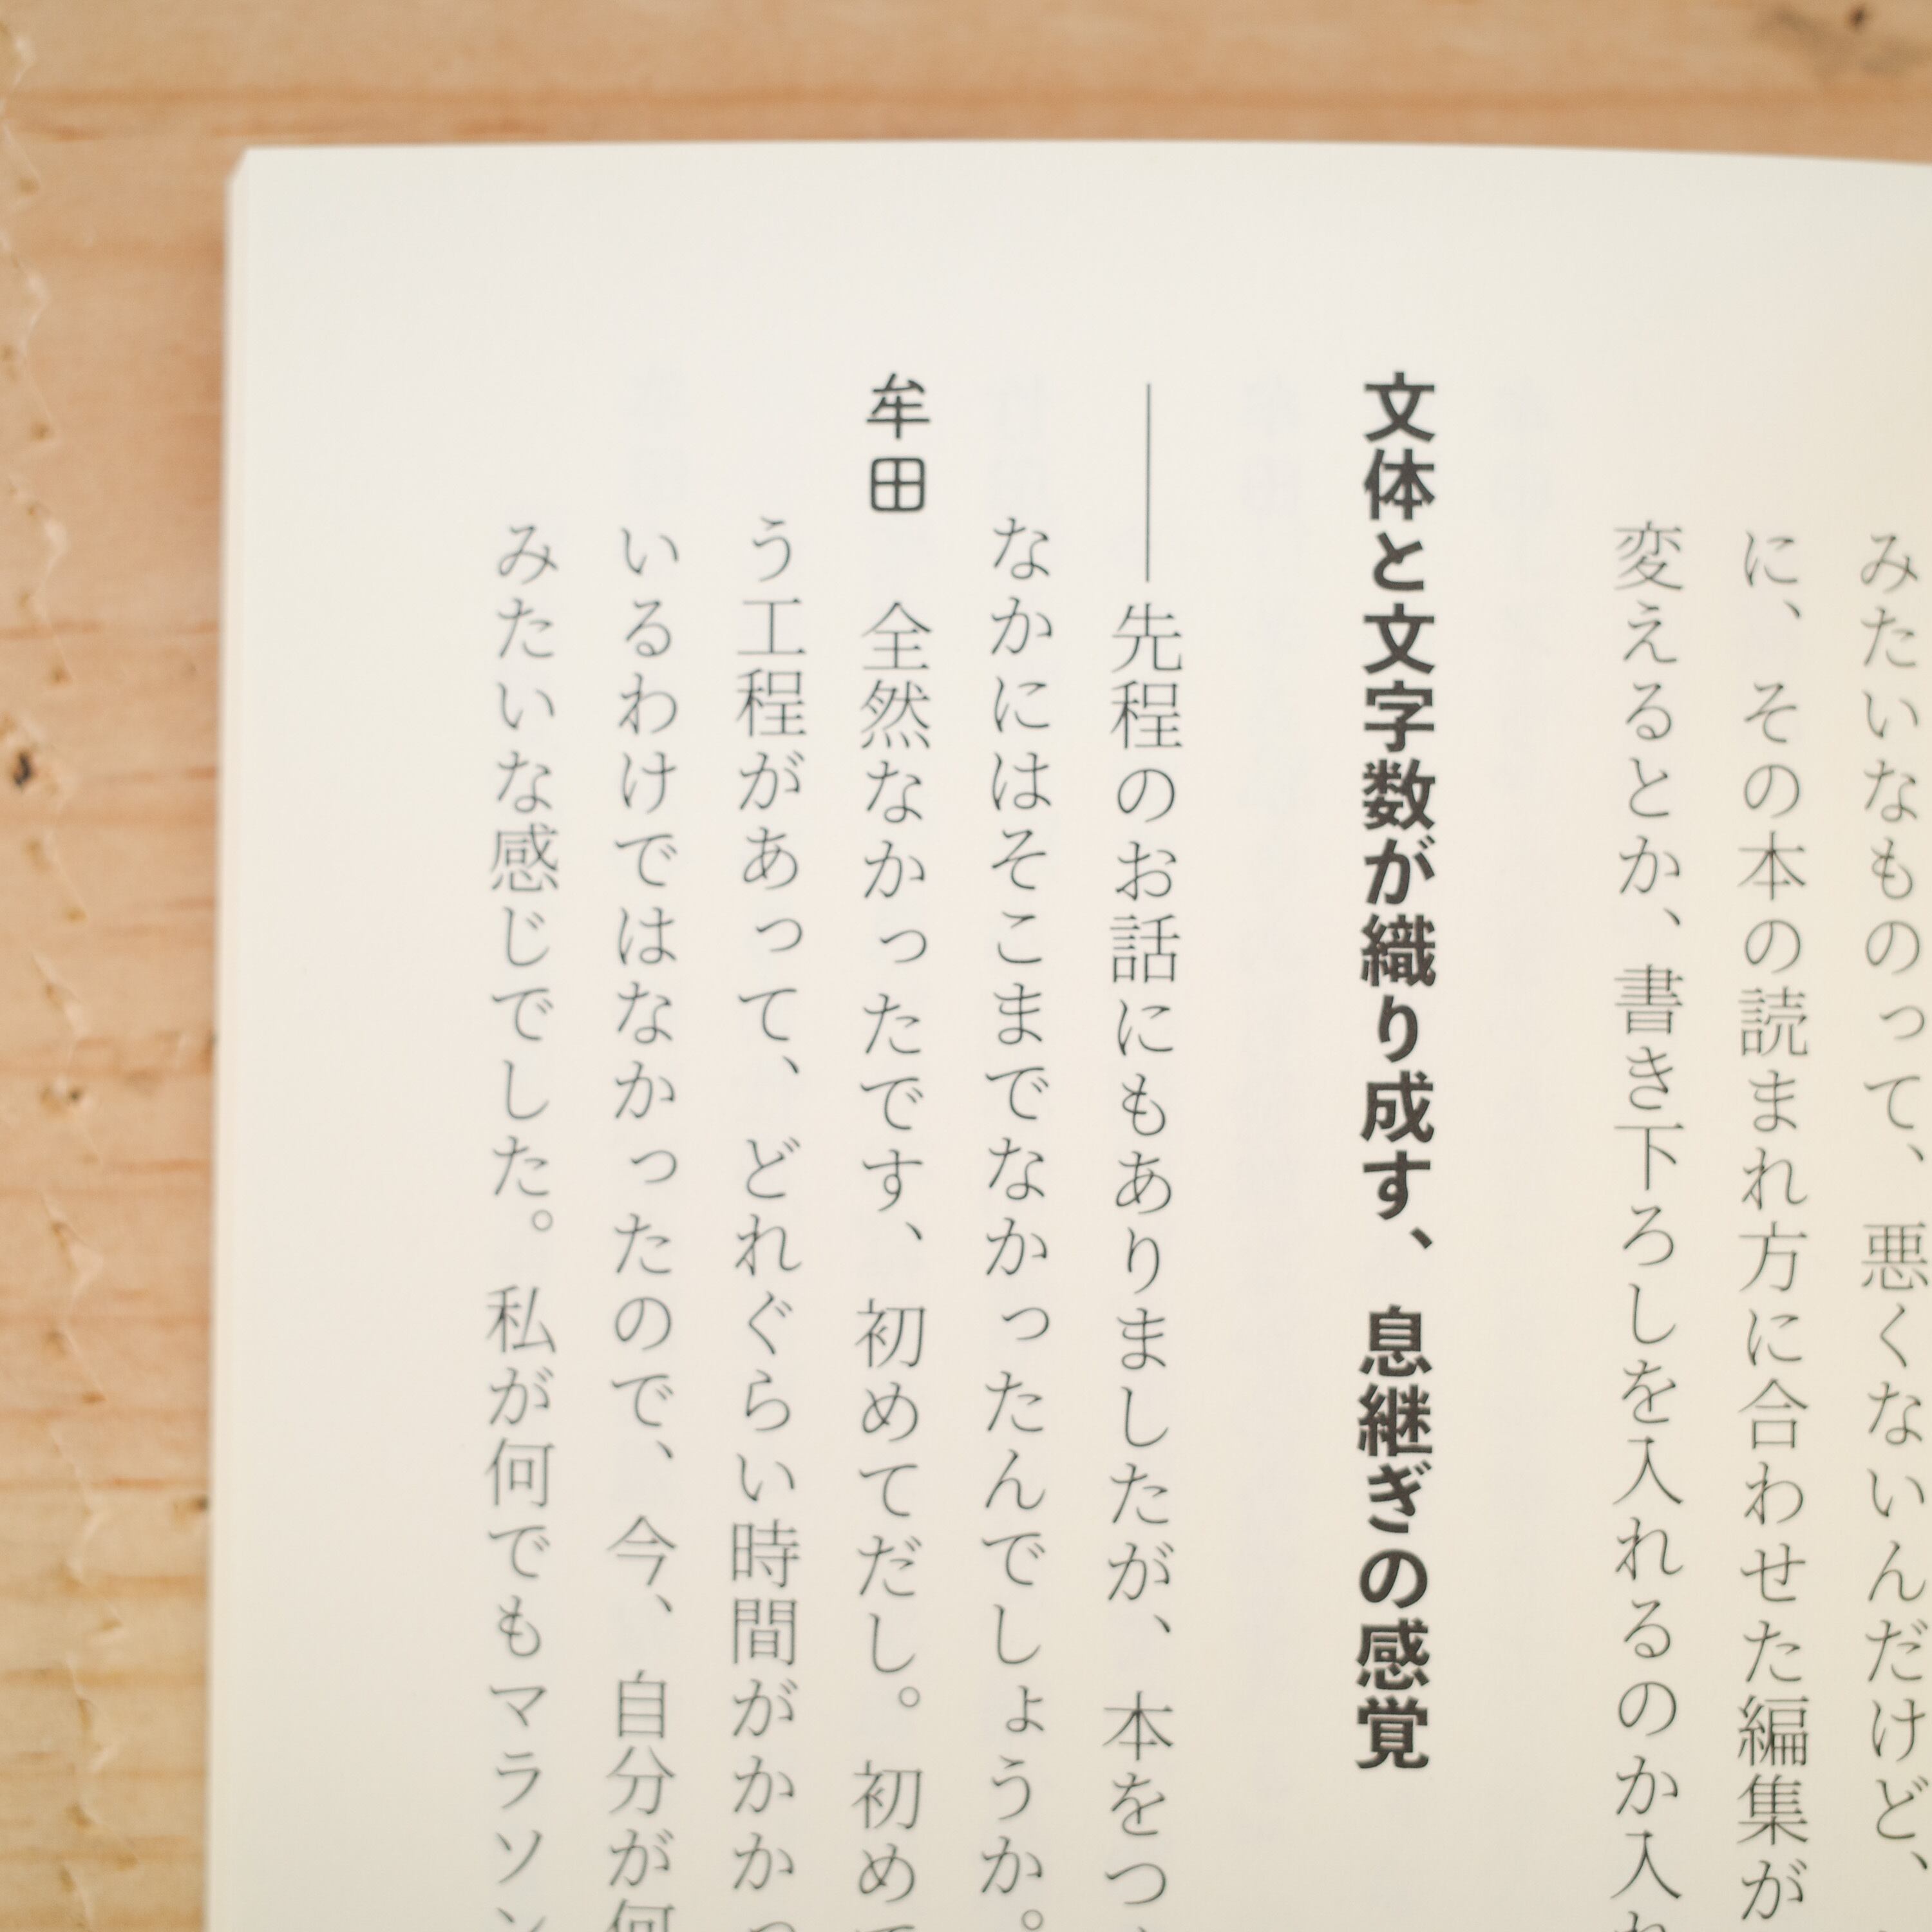 みたいなものって、悪くないんだけど、
に、その本の読まれ方に合わせた編集が
変えるとか、書き下ろしを入れるのか入れ
文体と文字数が織り成す、息継ぎの感覚
――先程のお話にもありましたが、本をつ
なかにはそこまでなかったんでしょうか。
牟田　全然なかったです、初めてだし。初めて
う工程があって、どれぐらい時間がかかっ
いるわけではなかったので、今、自分が何
みたいな感じでした。私が何でもマラソン